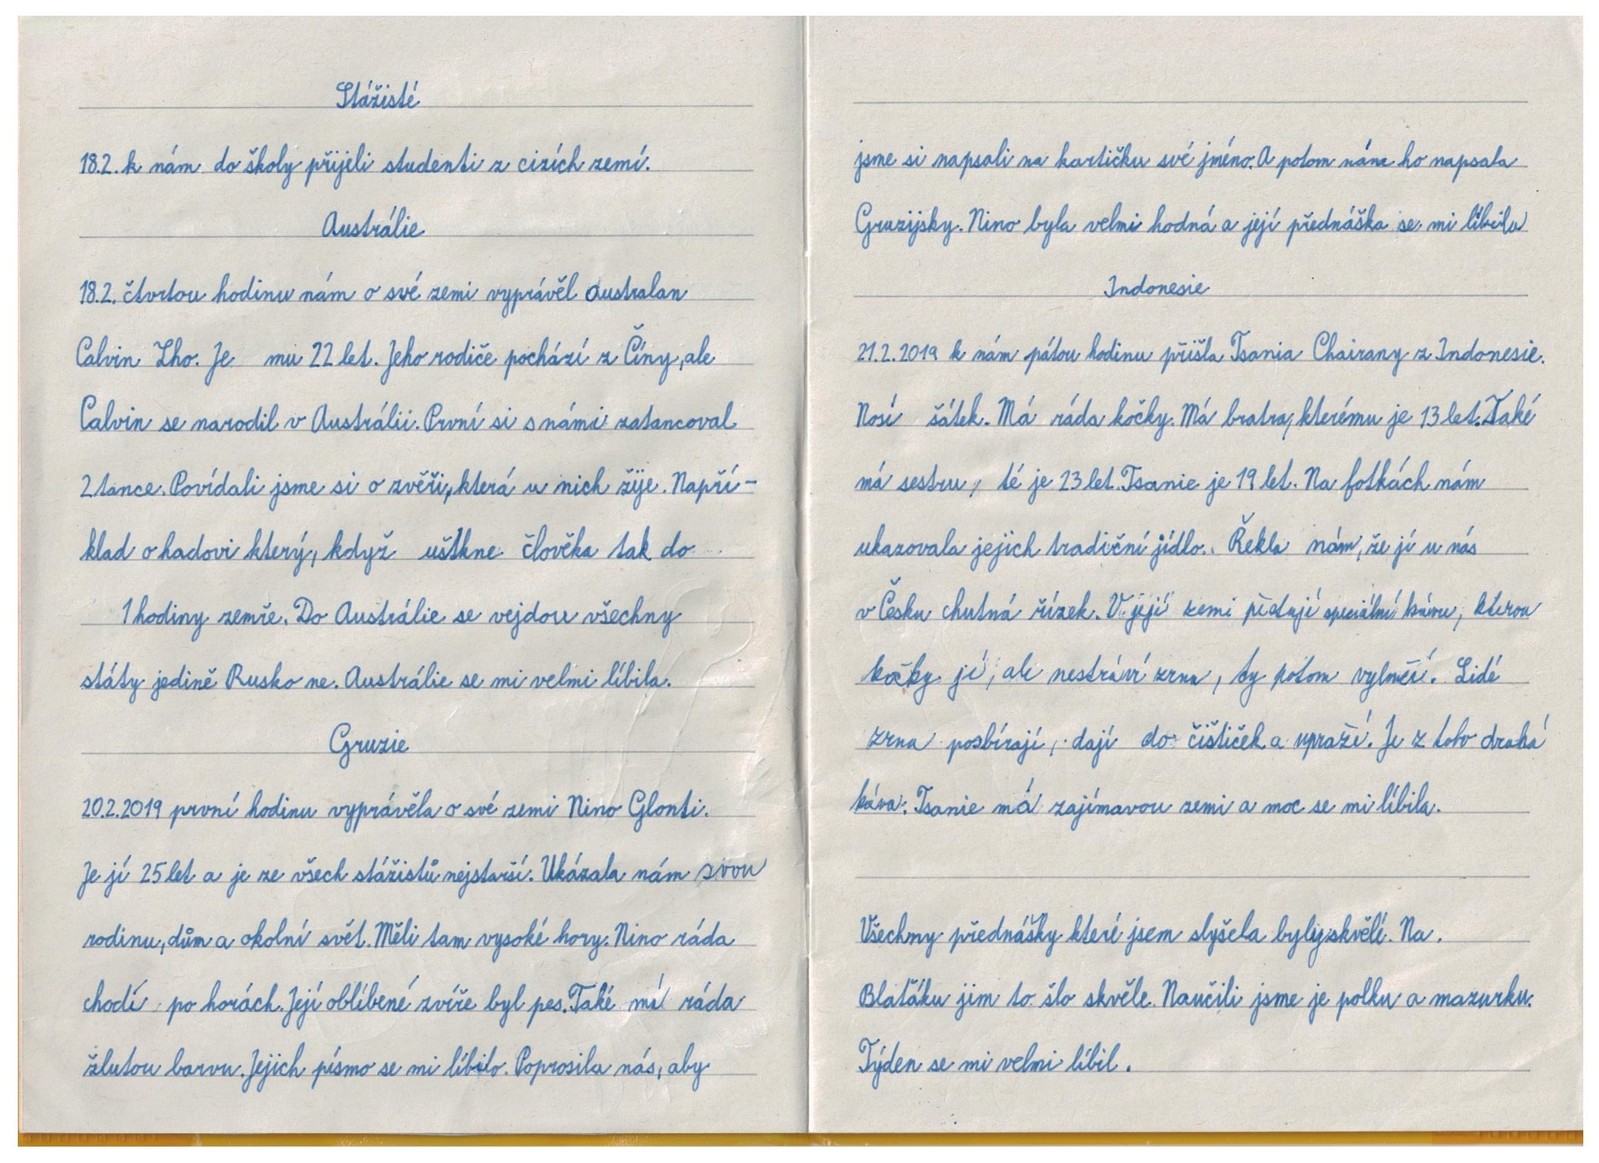 Stážisté
18.2. k nám do školy přijeli studenti z cizích zemí.
Austrálie
18.2. čtvrtou hodinu nám o své zemi vyprávěl Australan
Calvin Lho. Je mu 22 let. Jeho rodiče pochází z Číny, ale
Calvin se narodil v Austrálii. První si s námi zatancoval
2 tance. Povídali jsme si o zvěři, která u nich žije. Napří-
klad o hadovi který, když uštkne člověka tak do
1 hodiny zemře. Do Austrálie se vejdou všechny
státy jedině Rusko ne. Austrálie se mi velmi líbila.
Gruzie
20.2.2019 první hodinu vyprávěla o své zemi Nino Glonti.
Je jí 25 let a je ze všech stážistů nejstarší. Ukázala nám svou
rodinu, dům a okolní svět. Měli tam vysoké hory. Nino ráda
chodí po horách. Její oblíbené zvíře byl pes. Také má ráda
žlutou barvu. Jejich písmo se mi líbilo. Poprosila nás, aby
jsme si napsali na kartičku své jméno. A potom nám ho napsala
Gruzijsky. Nino byla velmi hodná a její přednáška se mi líbila
Indonesie
21.2.2019 k nám pátou hodinu přišla Tsania Chairany z Indonesie.
Nosí šátek. Má ráda kočky. Má bratra, kterému je 13 let. Také
má sestru, té je 23 let. Tsanie je 19 let. Na fotkách nám
ukazovala jejich tradiční jídlo. Řekla nám, že jí u nás
v Česku chutná řízek. V její zemi pěstují speciální kávu, kterou
kočky jí, ale nestráví zrna, ty potom vyloučí. Lidé
zrna posbírají, dají do čističek a upraží. Je z toho drahá
káva. Tsanie má zajímavou zemi a moc se mi líbila.
Všechny přednášky které jsem slyšela byly skvělé. Na
Blaťáku jim to šlo skvěle. Naučili jsme je polku a mazurku.
Týden se mi velmi líbil.